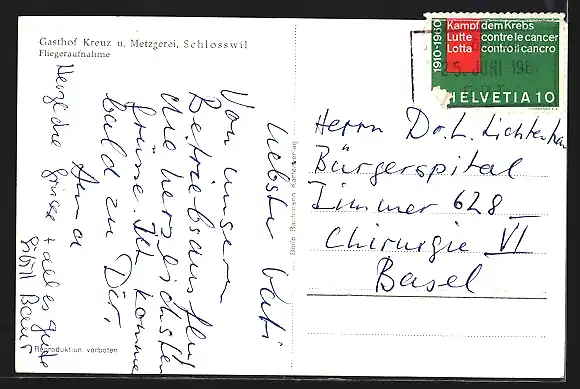 Gasthof Kreuz u. Metzgerei, Schlosswil
Fliegeraufnahme
Liebster Vati
Von unserem
Betriebsausflug
die herzlichsten
Grüsse. Ich komme
bald zu Dir,
Herzliche Grüsse + alles gute
Reproduktion verboten
1910-1960
Kampf dem Krebs
Lutte contre le cancer
Lotta contro il cancro
25. JUNI 196
HELVETIA 10
Herrn Dr. L. Lichtenhan
Bürgerspital
Zimmer 628
Chirurgie VI
Basel